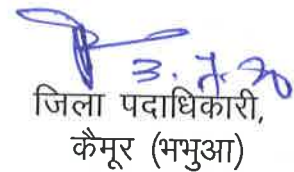 3.7.20
जिला पदाधिकारी,
कैमूर (भभुआ)